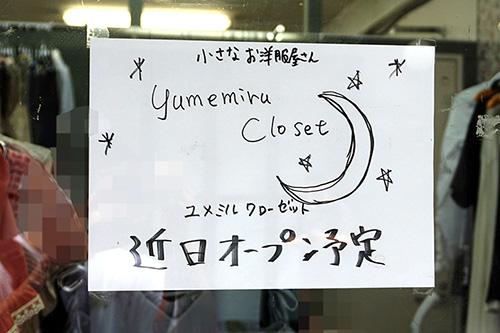 小さなお洋服屋さん
yumemiru
Closet
ユメミルクローゼット
近日オープン予定